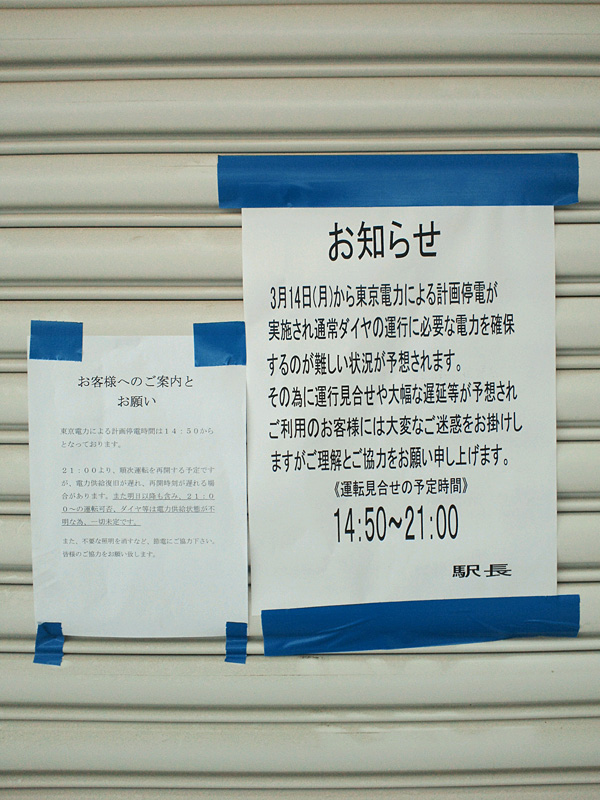 お知らせ
3月14日(月)から東京電力による計画停電が
実施され通常ダイヤの運行に必要な電力を確保
するのが難しい状況が予想されます。
その為に運行見合せや大幅な遅延等が予想され
ご利用のお客様には大変なご迷惑をお掛けし
ますがご理解とご協力をお願い申し上げます。
《運転見合せの予定時間》
14:50~21:00
駅長
お客様へのご案内と
お願い
東京電力による計画停電時間は14:50から
となっております。
21:00より、順次運転を再開する予定です
が、電力供給復旧が遅れ、再開時刻が遅れる場
合があります。また明日以降も含み、21:0
0~への運転可否、ダイヤ等は電力供給状態が不
明な為、一切未定です。
また、不要な照明を消すなど、節電にご協力下さい。
皆様のご協力をお願い致します。